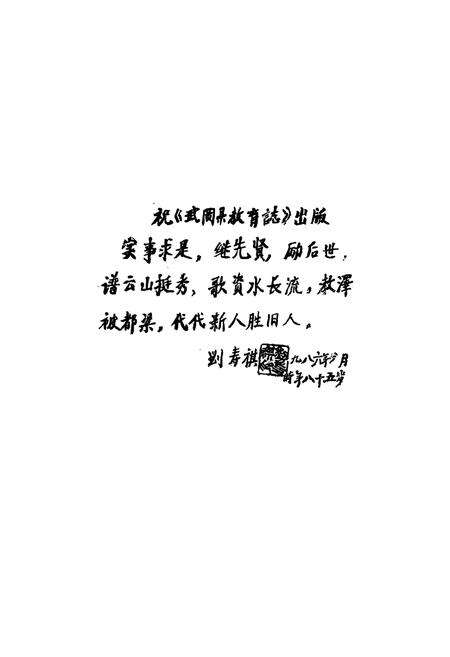 祝《武冈县教育誌》出版
实事求是，继先贤，励后世，
谱云山挺秀，歌资水长流，教泽
被都梁，代代新人胜旧人。
刘寿祺
一九八六年 月
时年八十五岁